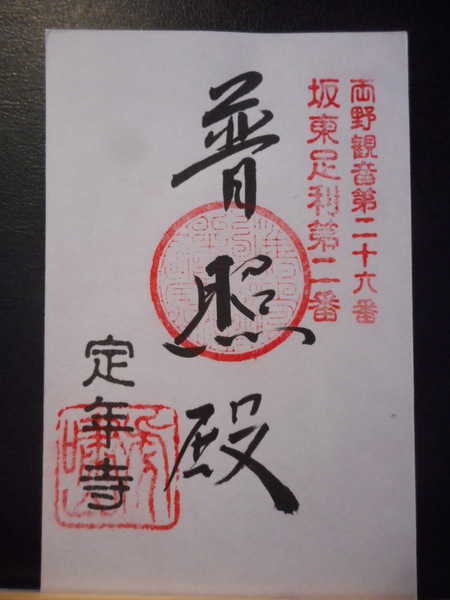 両野観音第二十六番
坂東足利第二番
普照殿
定年寺